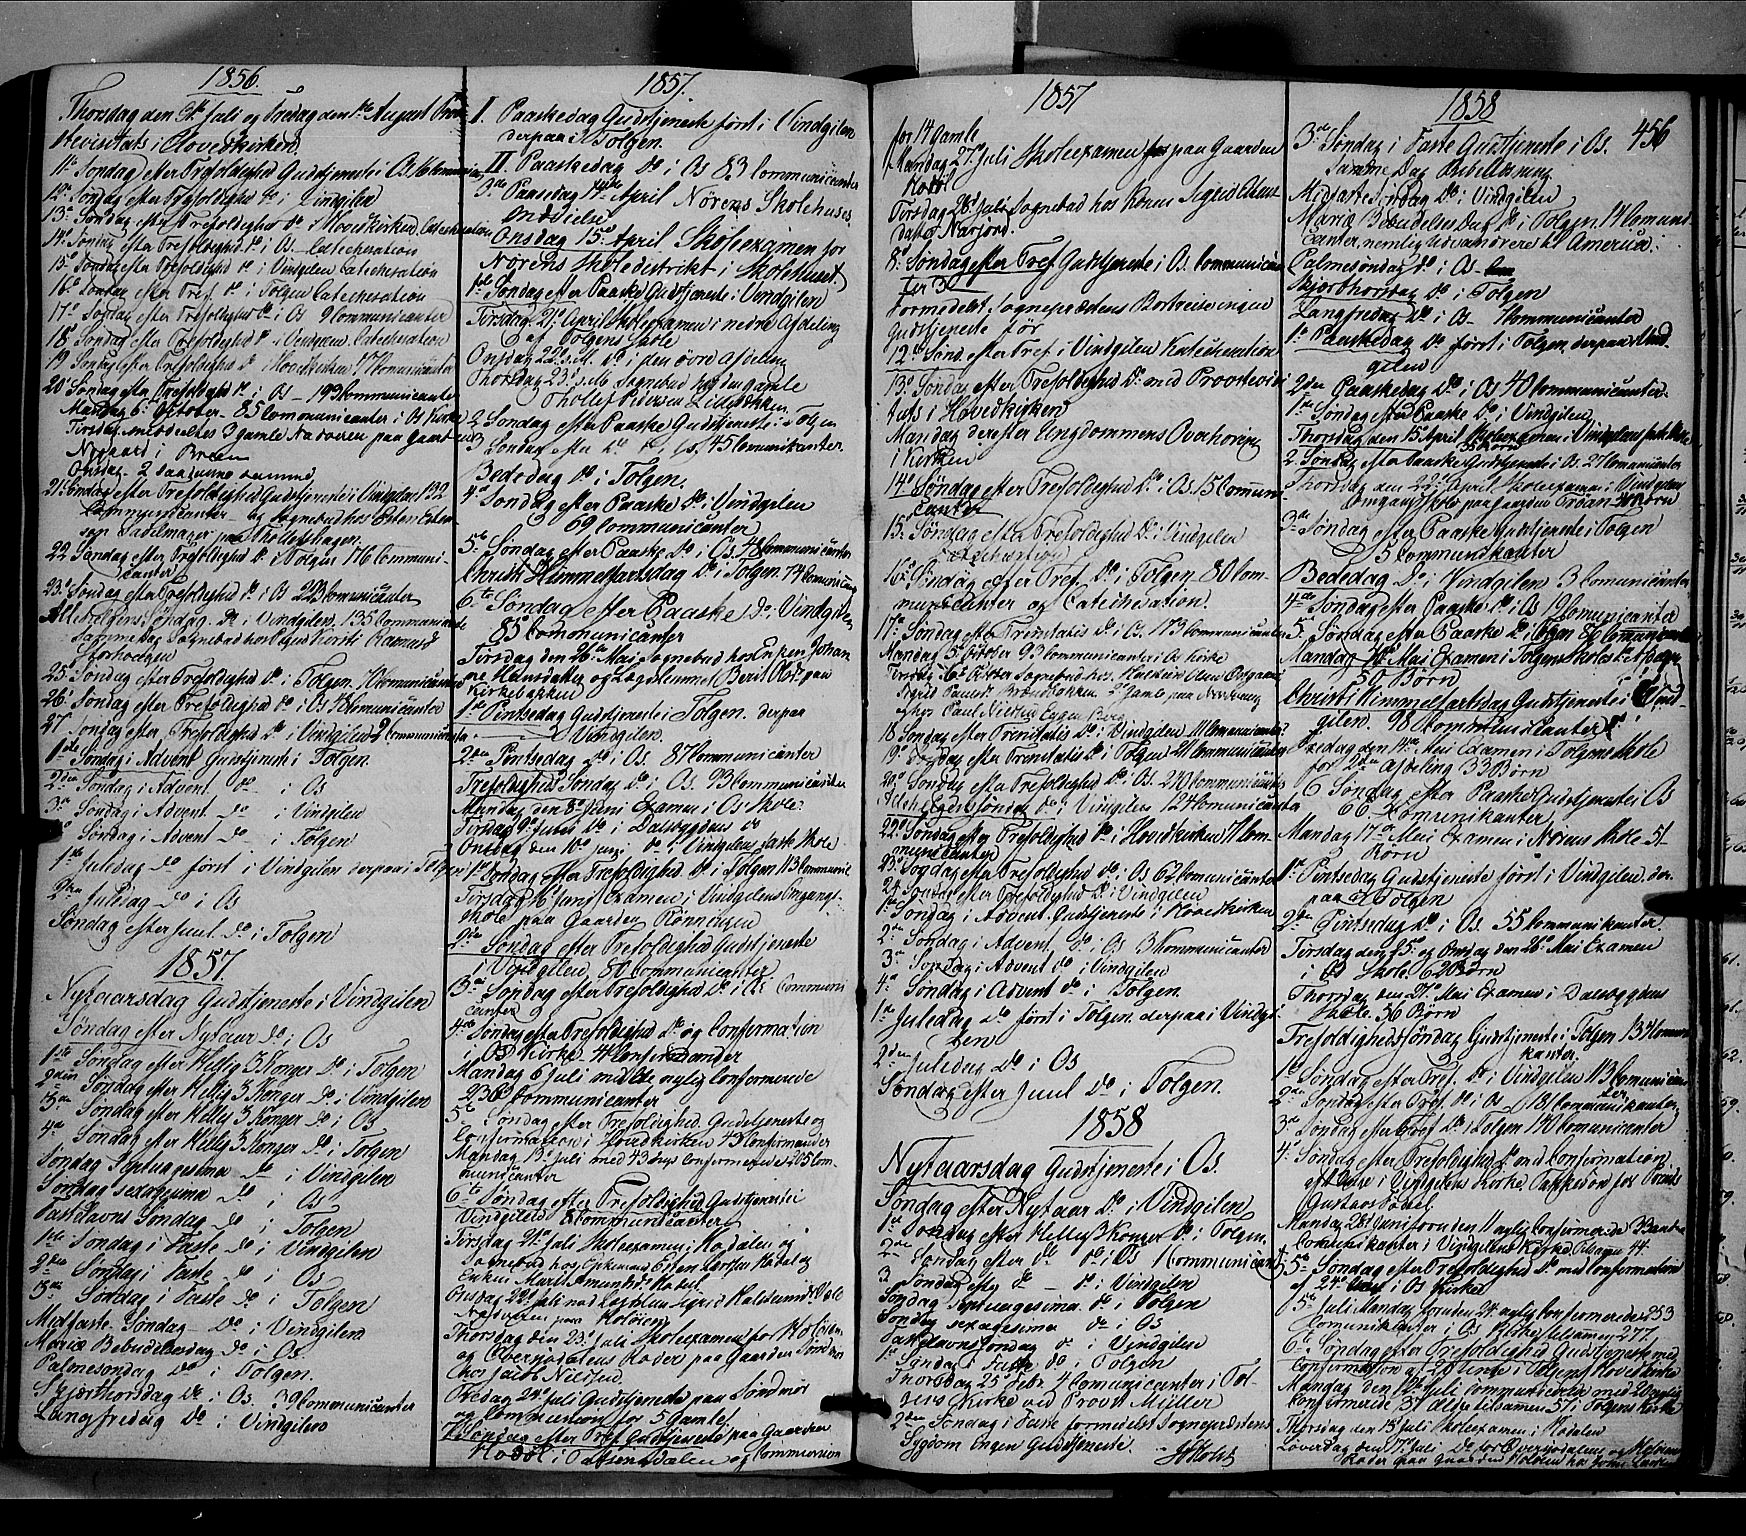 1856.
Thorsdag den 31te Juli og Fredag den 1ste August Prov-
stevisitats i Hovedkirken
11te Søndag efter Trefoldighed Gudstjeneste i Os, 16 Communicanter
12te Søndag efter Trefoldighed do i Vindgilen
13de Søndag efter Trefoldighed do i Hovedkirken, Catechesation
14de Søndag efter Trefoldighed do i Os Catechesation
15de Søndag efter Trefoldighed do i Vindgilen Catechesation
16de Søndag efter Tref. do i Tolgen Catechesation
17de Søndag efter Trefoldighed do i Os 9 Communicanter
18de Søndag efter Trefoldighed do i Vindgilen Catechesation
19. Søndag efter Trefoldighed do i Hovedkirken 17 Communicanter
20de Søndag efter Trefoldighed do i Os 193 Communicanter
Mandag 6te October 85 Communicanter i Os Kirke
Tirsdag meddeltes 3 gamle Nadveren paa Gaarden
Nygaard i
Onsdag 2
21de Søndag efter Trefoldighed Gudstjeneste i Vindgilen 132
Communicanter og Sognebud hos Esten Esten-
sen Sadelmager paa
22 Søndag efter Trefoldighed do i Tolgen 176 Communi-
canter
23de Søndag efter Trefoldighed do i Os 223 Communicanter
Allehelgens Søndag do i Vindgilen, 135 Communicanter
Samme Dag Sognebud hos Kirsti Rasmusd
25. Søndag efter Trefoldighed do i Tolgen 70 Communicanter
26de Søndag efter Trefoldighed do i Os 48 Communicanter
27 Søndag efter Trefoldighed do i Vindgilen 2 Communicanter
1ste Søndag i Advent Gudstjeneste i Tolgen.
2den Søndag i Advent do i Os
3die Søndag i Advent do i Vindgilen
4de Søndag i Advent do i Tolgen
1ste Juledag do først i Vindgilen derpaa i Tolgen
2den Juledag do i Os
Søndag efter Juul do i Tolgen
1857.
Nytaarsdag Gudstjeneste i Vindgilen
Søndag efter Nytaar do i Os
1ste Søndag efter Hellig 3 Konger do i Tolgen
2den Søndag efter Hellig 3 Konger do i Vindgilen
3die Søndag efter Hellig 3 Konger do i Os
4de Søndag efter Hellig 3 Konger do i Tolgen
Søndag Septuagesima do i Vindgilen
Søndag sexagesima do i Os
Fastelavns Søndag do i Tolgen
1ste Søndag i Faste do i Vindgilen
2den Søndag i Faste do i Os
3die Søndag i Faste do i Tolgen
Midfaste Søndag do i Vindgilen
Mariæ Bebudelsesdag do i Os.
Palmesøndag do i Tolgen.
Skjærthorsdag do i Os. 39 Communicanter
Langfredag do i Vindgilen
1857.
I. Paaskedag Gudstjeneste først i Vindgilen
derpaa i Tolgen.
II. Paaskedag do i Os 83 Communicanter
3die Paaskedag 14de April Nørens Skolehuses
Indvielse
Onsdag 15de April Skoleexamen for
Nørens Skoledistrikt i Skolehuset
1ste Søndag efter Paaske Gudstjeneste i Vindgilen
Tirsdag 21de April Skoleexamen i nedre Afdeling
af Tolgens Skole
Onsdag 22de s.M. do i den øvre Afdeling
Thorsdag 23de s.M. Sognebud hos den gamle
Thollef Pedersen
2 Søndag efter Paaske Gudstjeneste i Tolgen
3 Søndag efter do do i Os. 45 Communikanter.
Bededag do i Tolgen.
4de Søndag efter Paaske do i Vindgilen
69 Communicanter
5te Søndag efter Paaske do i Os 78 Communicanter
Christi Himmelfartsdag do i Tolgen. 74 Communicanter
6te Søndag efter Paaske do i Vindgilen
85 Communicanter
Tirsdag den 26de Mai Sognebud hos Enken Johan-
ne Hansdatter og Lægdslemmet Berit paa
Kirkebakken
1ste Pintsedag Gudstjeneste i Tolgen. derpaa
i Vindgilen.
2den Pintsedag do i Os 87 Communicanter
Trefoldigheds Søndag do i Os. 93 Communicanter
Mandag den 8de Juni Examen i Os Skole.
Tirsdag 9de Juni do i Dalsbygdens do
Onsdag den 10de Juni do i Vindgilens faste Skole
1ste Søndag efter Trefoldighed do i Tolgen 113 Communic.
Tirsdag 16 Juni Examen i Vindgilens Omgangs-
skole paa Gaarden Rønningen
2den Søndag efter Trefoldighed Gudstjeneste
i Vindgilen, 50 Communicanter
3die Søndag efter Trefoldighed do i Os Communi-
canter 9
4de Søndag efter Trefoldighed do og Confirmation
i Os Kirke 41 Confirmander
Mandag 6 Juli med de nylig Confirmerede
236 Communicanter
5te Søndag efter Trefoldighed Gudstjeneste og
Confirmation i Hovedkirken 43 Confirmander
Mandag 13de Juli med 43 nys Confirmerede 205 Com-
municanter
6te Søndag efter Trefoldighed Gudstjeneste i
Vindgilen 8 Communicanter
Tirsdag 21de Juli Skoleexamen i Hodalen og
Sognebud hos
Enken Marit
Onsdag 22de Juli
Nadveren paa Holøien
Thorsdag den 23de Juli Skoleexamen for Holøiens
og Øversjødalens Roder paa Gaarden
hos Jacob Nilssen.
Fredag 24de Juli Gudstjeneste paa Sømdrør
og Communion for 5 Gamle
7 Søndag efter Tref Gudstjeneste paa Gaarden
Hodøl i Dalen og Communion
1857
for 14 Gamle
Mandag 27de Juli Skoleexamen paa Gaarden
Hodøl
Tirsdag 28de Juli Sognebud hos Konen Sigrid Estens-
datter Narjord.
8de Søndag efter Tref Gudstjeneste i Os. Communican-
ter 3
Formedelst Sognepræstens Bortreise ingen
Gudstjeneste før
12te Sønd. efter Tref. i Vindgilen Katechesation
13de Søndag efter Trefoldighed do med Provstevisi-
tats i Hovedkirken
Mandag derefter Ungdommens Overhøring
i Kirken
14de Søndag efter Trefoldighed do i Os 15 Communi-
canter
15de Søndag efter Trefoldighed do i Vindgilen
Catechesation
16de Søndag efter Tref. do i Tolgen 80 Com-
municanter og Catechesation.
17de Søndag efter Trinitatis do i Os. 173 Communicanter
Mandag 5te October 93 Communicanter i Os Kirke
Tirsdag 6te October Sognebud hos
18 Søndag efter Trinitatis do i Vindgilen 111 Communicanter.
19de Søndag efter Trinitatis do i Tolgen 211 Communicanter
20de Søndag efter Trefoldighed do i Os. 210 Communicanter
Allehelgensøndag do i Vindgilen 124 Communicanter
22de Søndag efter Trefoldighed do i Hovedkirken 71 Com-
municanter
23de Søndag efter Trefoldighed do i Os 62 Communicanter
24 Søndag efter Trefoldighed do i Vindgilen
1ste Søndag i Advent Gudstjeneste i Hovedkirken
2den Søndag i Advent do i Os 3 Kommunicanter
3die Søndag i Advent do i Vindgilen
4de Søndag i Advent do i Tolgen.
1ste Juledag do først i Tolgen. derpaa i Vindgi-
len
2den Juledag do i Os
Søndag efter Juul do i Tolgen.
1858
Nytaarsdag Gudstjeneste i Os.
Søndag efter Nytaar do i Vindgilen
1ste Søndag efter Hellig 3 Konger do i Tolgen.
2den Søndag efter do do i Os Kommunicant
3 Søndag efter do do i Vindgilen
Søndag Septuagesima do i Tolgen
Søndag sexagesima do i Os
Fastelavnssøndag do i Vindgilen
1ste Søndag i Faste do i Tolgen
Thorsdag 25de Febr. 4 Communicanter i Tol-
gens Kirke ved Provst Müller
2den Søndag i Faste formedelst Sognepræstens
Sygdom ingen Gudstjeneste.
Holst
1858
456
3die Søndag i Faste Gudstjeneste i Os.
Samme Dag Bibellæsning
Midfastesøndag do i Vindgilen
Mariæ Bebudelses Dag do i Tolgen. 14 Commun-
canter, nemlig Udvandrere til Amerika.
Palmesøndag do i Os
Skjærthorsdag do i Tolgen
Langfredag do i Os Kommunicanter
1ste Paaskedag do først i Tolgen. derpaa i Vind-
gilen
2den Paaskedag do i Os 40 Communicanter
1ste Søndag efter Paaske do i Vindgilen
Thorsdag den 15 April Skoleexamen i Vindgilens faste Skole
35 Børn
2. Søndag efter Paaske Gudstjeneste i Os. 27 Communicanter
Thorsdag den 22de April Skoleexamen i Vindgilens
Omgangsskole paa Gaarden Trøan 24 Børn
3die Søndag efter Paaske Gudstjeneste i Tolgen
5 Communikanter
Bededag do i Vindgilen 3 Communicanter
4de Søndag efter Paaske do i Os 19 Communicanter
5te Søndag efter Paaske do i Tolgen Communicanter
Mandag 10de Mai Examen i Tolgens Skoles 1ste Afdeling
50 Børn
Christi Himmelfartsdag Gudstjeneste i Vind-
gilen. 98 Communicanter
Fredag den 14de Mai Examen i Tolgens Skole
for 2den Afdeling 33 Børn
6 Søndag efter Paaske Gudstjeneste i Os
66 Kommunikanter
Mandag 17de Mai Examen i Nørens Skole 51
Børn
1ste Pintsedag Gudstjeneste først i Vindgilen. der-
paa i Tolgen
2den Pintsedag do i Os. 55 Communikanter.
Tirsdag den 25de og Onsdag den 26de Mai Examen
i Os Skole 62 Børn
Thorsdag den 27de Mai Examen i Dalsbygdens
Skole. 56 Børn
Trefoldighedssøndag Gudstjeneste i Tolgen 13 Kommuni-
kanter.
1ste Søndag efter Tref. do i Vindgilen 113 Communican-
ter
2den Søndag efter Tref do i Os 181 Communikanter
3die Søndag efter Tref do i Tolgen 140 Communicanter
4de Søndag efter Trefoldighed do med Confirmation
af i Vindgilens Kirke. Takkebøn for Prinds
Gustavs Fødsel
Mandag 28de Juni foruden 11 nylig Confirmerede 33 andre
Communikanter i Vindgilens Kirke tilsamen 44.
5te Søndag efter Trefoldighed do med Confirmation
af 24 i Os Kirke
5te Juli Mandag foruden 24 nylig Confirmerede 253
Communikanter i Os Kirke tilsamen 277.
6te Søndag efter Trefoldighed Gudstjeneste med
Confirmation af 20 Unge i Tolgens Hovedkirke
Mandag den 12te Juli Communicanter med 20 nylig
Confirmerede 37 Ældre tilsamen 57 i Tolgens Kirke
Thorsdag den 15 Juli Skoleexamen i Hodalen
Løverdag den 17 Juli do for Øversjødalens og Holøiens
Roder paa Gaarden Holøien hos